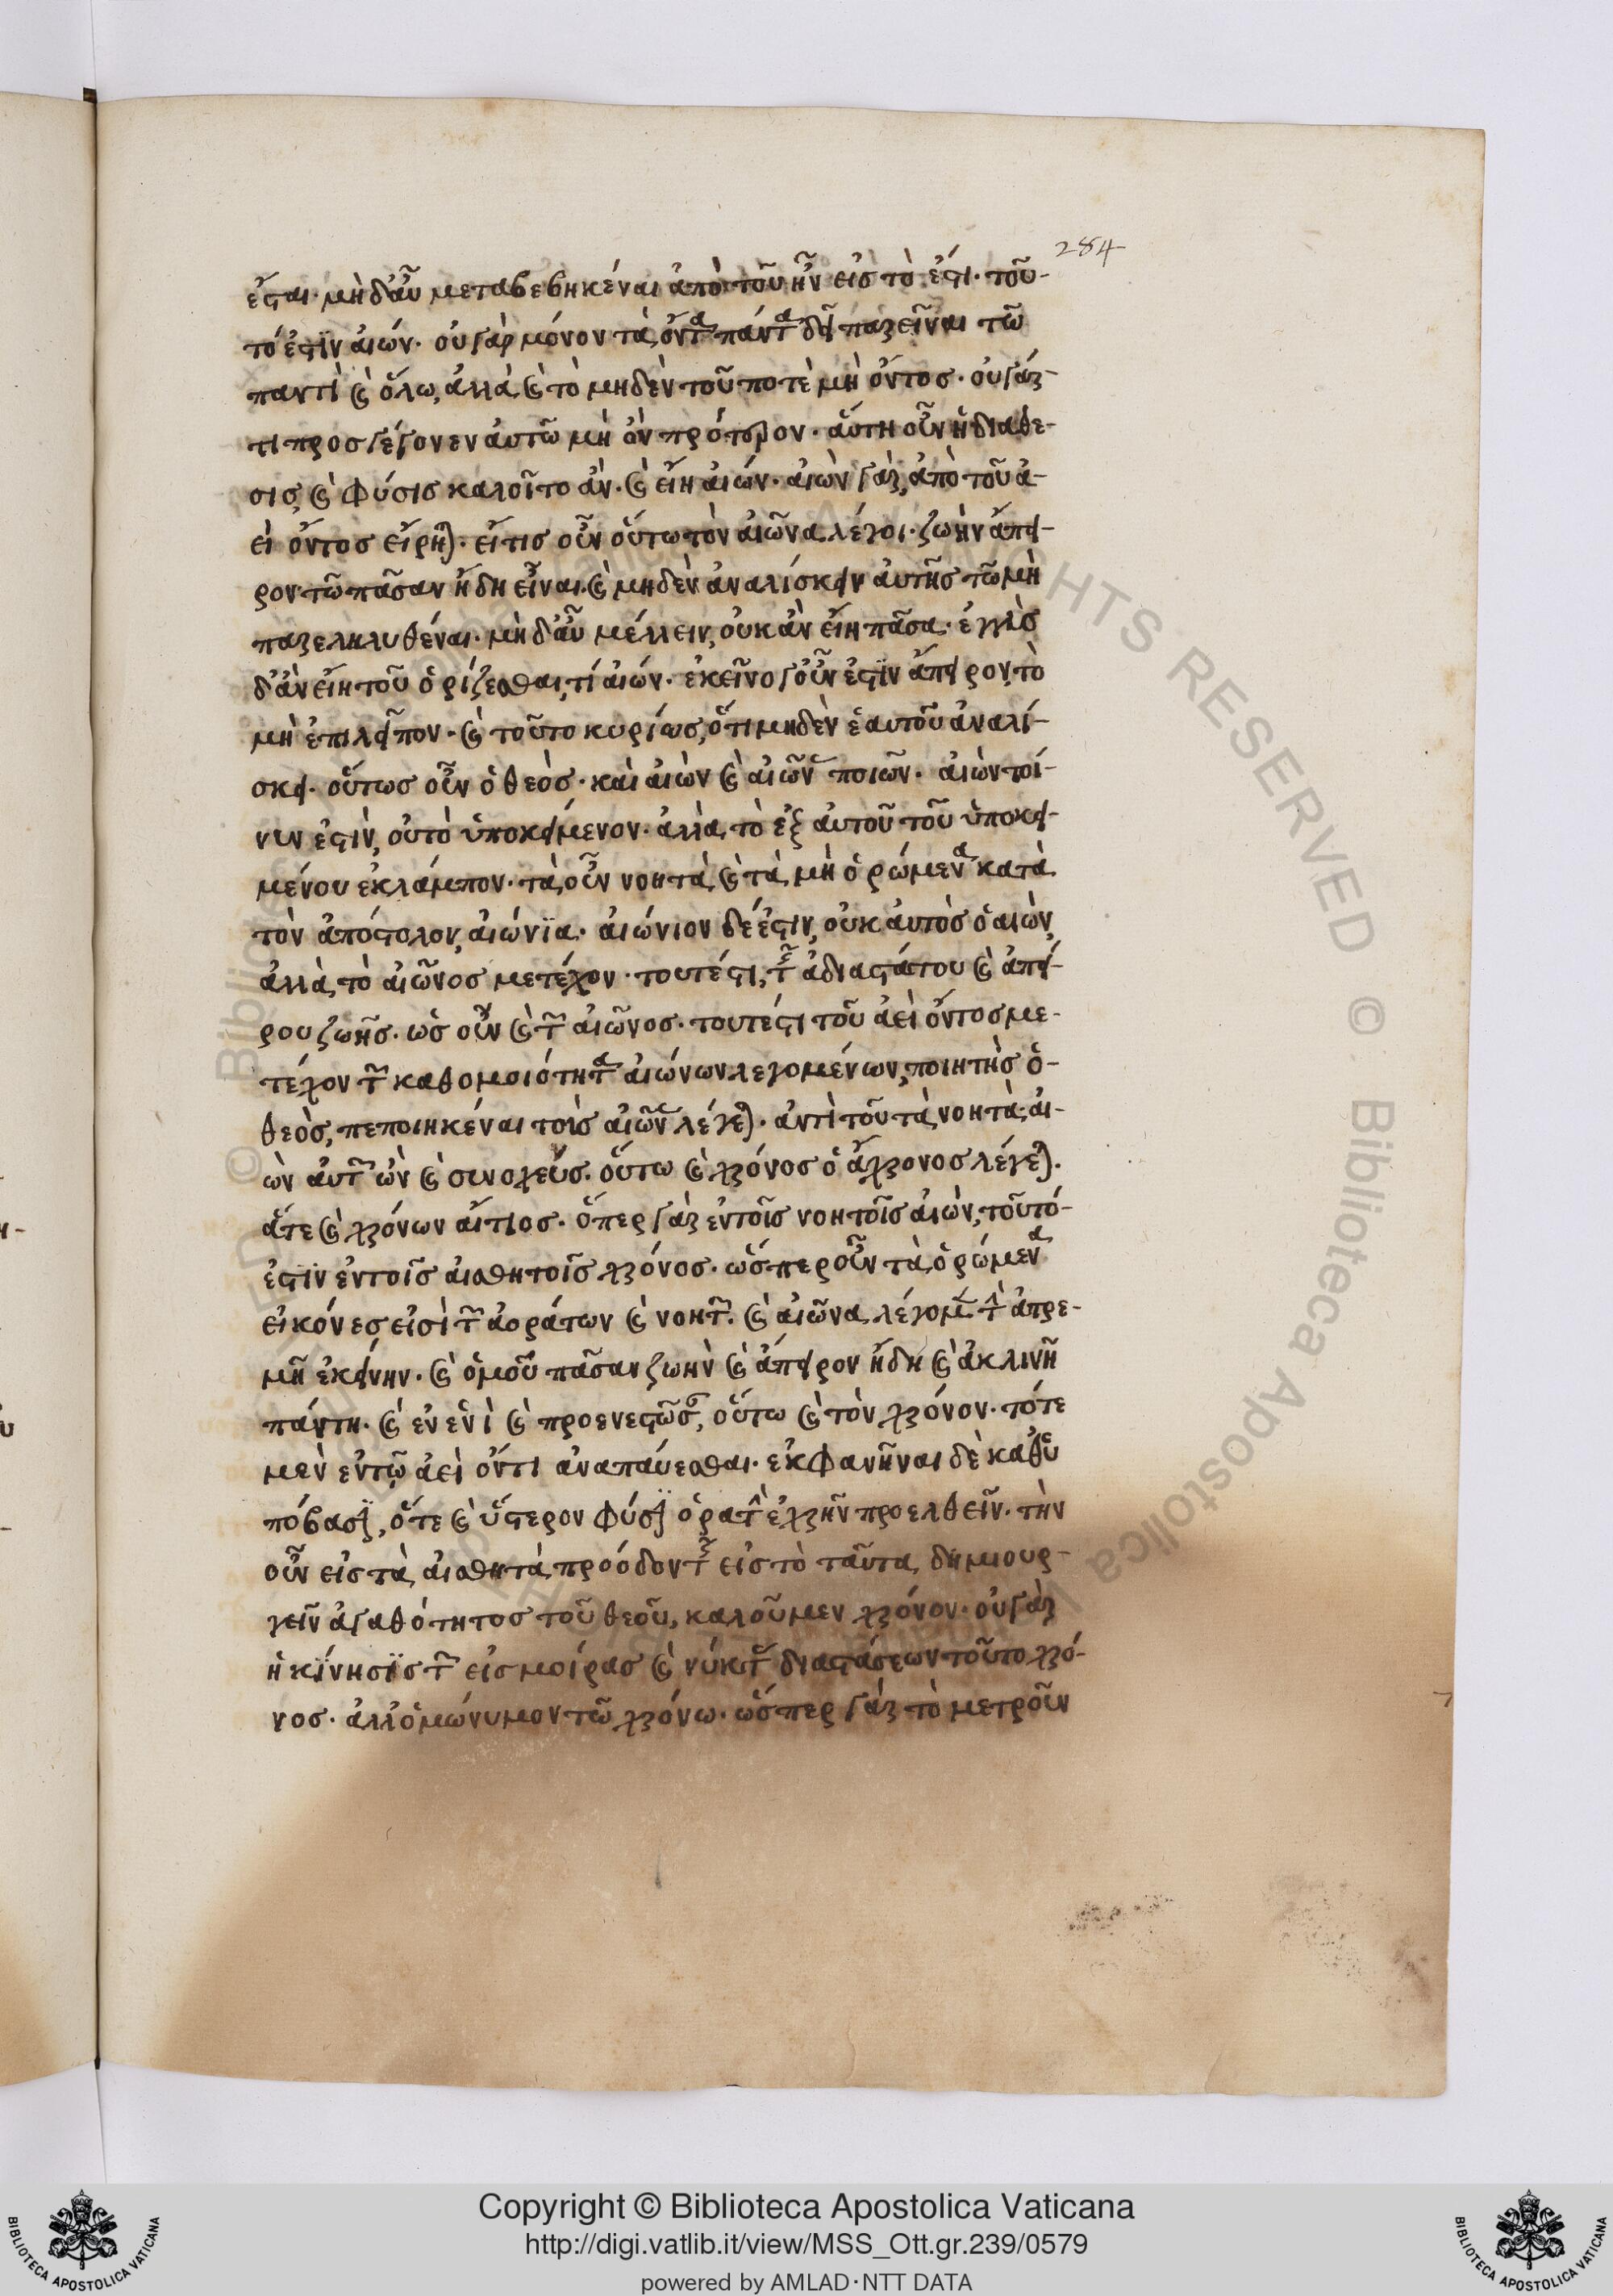 284
ἔσται· μὴ δ' αὖ μεταβεβηκέναι ἀπὸ τοῦ ἦν εἰς τὸ ἔστι· τοῦ-
τό ἐστϊν αἰών· οὐ γὰρ μόνον τὰ ὄντα πάντα δεῖ παρεῖναι τῶ
παντὶ καὶ ὅλω, ἀλλὰ καὶ τὸ μηδὲν τοῦ ποτὲ μὴ ὄντος· οὐ γάρ
τι προσγέγονεν αὐτῶ μὴ ὂν πρότερον· αὕτη οὖν ἡ διάθε-
σις, καὶ φύσις καλοῖτο ἂν· καὶ εἴη αἰών· αἰὼν γὰρ, ἀπὸ τοῦ ἀ-
εὶ ὄντος εἴρηται· εἴ τις οὖν οὕτω τὸν αἰῶνα λέγοι· ζωὴν ἄπει-
ρον τῶ πᾶσαν ἤδη εἶναι· καὶ μηδὲν ἀναλίσκειν αὐτῆς τῶ μὴ
παρεληλυθέναι· μὴ δ' αὖ μέλλειν, οὐκ ἂν εἴη πᾶσα· ἐγγὺς
δ' ἂν εἴη τοῦ ὁρίζεσθαι, τί αἰών· ἐκεῖνο γοῦν ἐστϊν ἄπειρον, τὸ
μὴ ἐπιλεῖπον· καὶ τοῦτο κυρίως, ὅτι μηδὲν ἑαυτοῦ ἀναλί-
σκει· οὕτως οὖν ὁ θεὸς· καὶ αἰὼν καὶ αἰῶνας ποιῶν· αἰὼν τοί-
νυν ἐστὶν, οὐ τὸ ὑποκείμενον· ἀλλὰ τὸ ἐξ αὐτοῦ τοῦ ὑποκει-
μένου ἐκλάμπον· τὰ οὖν νοητὰ καὶ τὰ μὴ ὁρώμενα κατὰ
τὸν ἀπόστολον, αἰώνϊα· αἰώνιον δέ ἐστιν, οὐκ αὐτὸς ὁ αἰών,
ἀλλὰ τὸ αἰῶνος μετέχον· τουτέστι, τῆς ἀδιαστάτου καὶ ἀπεί-
ρου ζωῆς· ὡς οὖν καὶ τῶν αἰῶνος· τουτέστι τοῦ ἀεὶ ὄντος με-
τέχον τῶν καθ' ὁμοιότητα αἰώνων λεγομένων, ποιητὴς ὁ
θεὸς, πεποιηκέναι τοὺς αἰῶνας λέγεται· ἀντὶ τοῦ τὰ νοητὰ, αἰ-
ὼν αὐτῶν ὢν καὶ συνοχεύς· οὕτω καὶ χρόνος ὁ ἄχρονος λέγεται·
ἅτε καὶ χρόνων αἴτιος· ὅπερ γὰρ ἐν τοῖς νοητοῖς αἰών, τοῦτό
ἐστϊν ἐν τοῖς αἰσθητοῖς χρόνος· ὥσπερ οὖν τὰ ὁρώμενα
εἰκόνες εἰσὶ τῶν ἀοράτων καὶ νοητῶν· καὶ αἰῶνα λέγομεν τὴν ἀτρε-
μῆ ἐκείνην· καὶ ὁμοῦ πᾶσαν ζωὴν καὶ ἄπειρον ἤδη καὶ ἀκλινῆ
πάντη· καὶ ἐν ἑνὶ καὶ προενεστῶσαν, οὕτω καὶ τὸν χρόνον· τότε
μὲν ἐν τῷ ἀεὶ ὄντι ἀναπαύεσθαι· ἐκφανῆναι δὲ καθ' ὑ
πόβασιν, ὅτε καὶ ὕστερον φύσιν ὁρατὴν ἐχρῆν προελθεῖν· τὴν
οὖν εἰς τὰ αἰσθητὰ πρόοδον τῆς εἰς τὸ ταῦτα δημιουρ-
γεῖν ἀγαθότητος τοῦ θεοῦ, καλοῦμεν χρόνον· οὐ γὰρ
ἡ κίνησϊς τῶν εἰς μοίρας καὶ νύκτας διαστάσεων τοῦτο χρό-
νος· ἀλλ' ὁμώνυμον τῶ χρόνω· ὥσπερ γὰρ τὸ μετροῦν
Copyright © Biblioteca Apostolica Vaticana
http://digi.vatlib.it/view/MSS_Ott.gr.239/0579
powered by AMLAD·NTT DATA
BIBLIOTECA APOSTOLICA VATICANA
BIBLIOTECA APOSTOLICA VATICANA